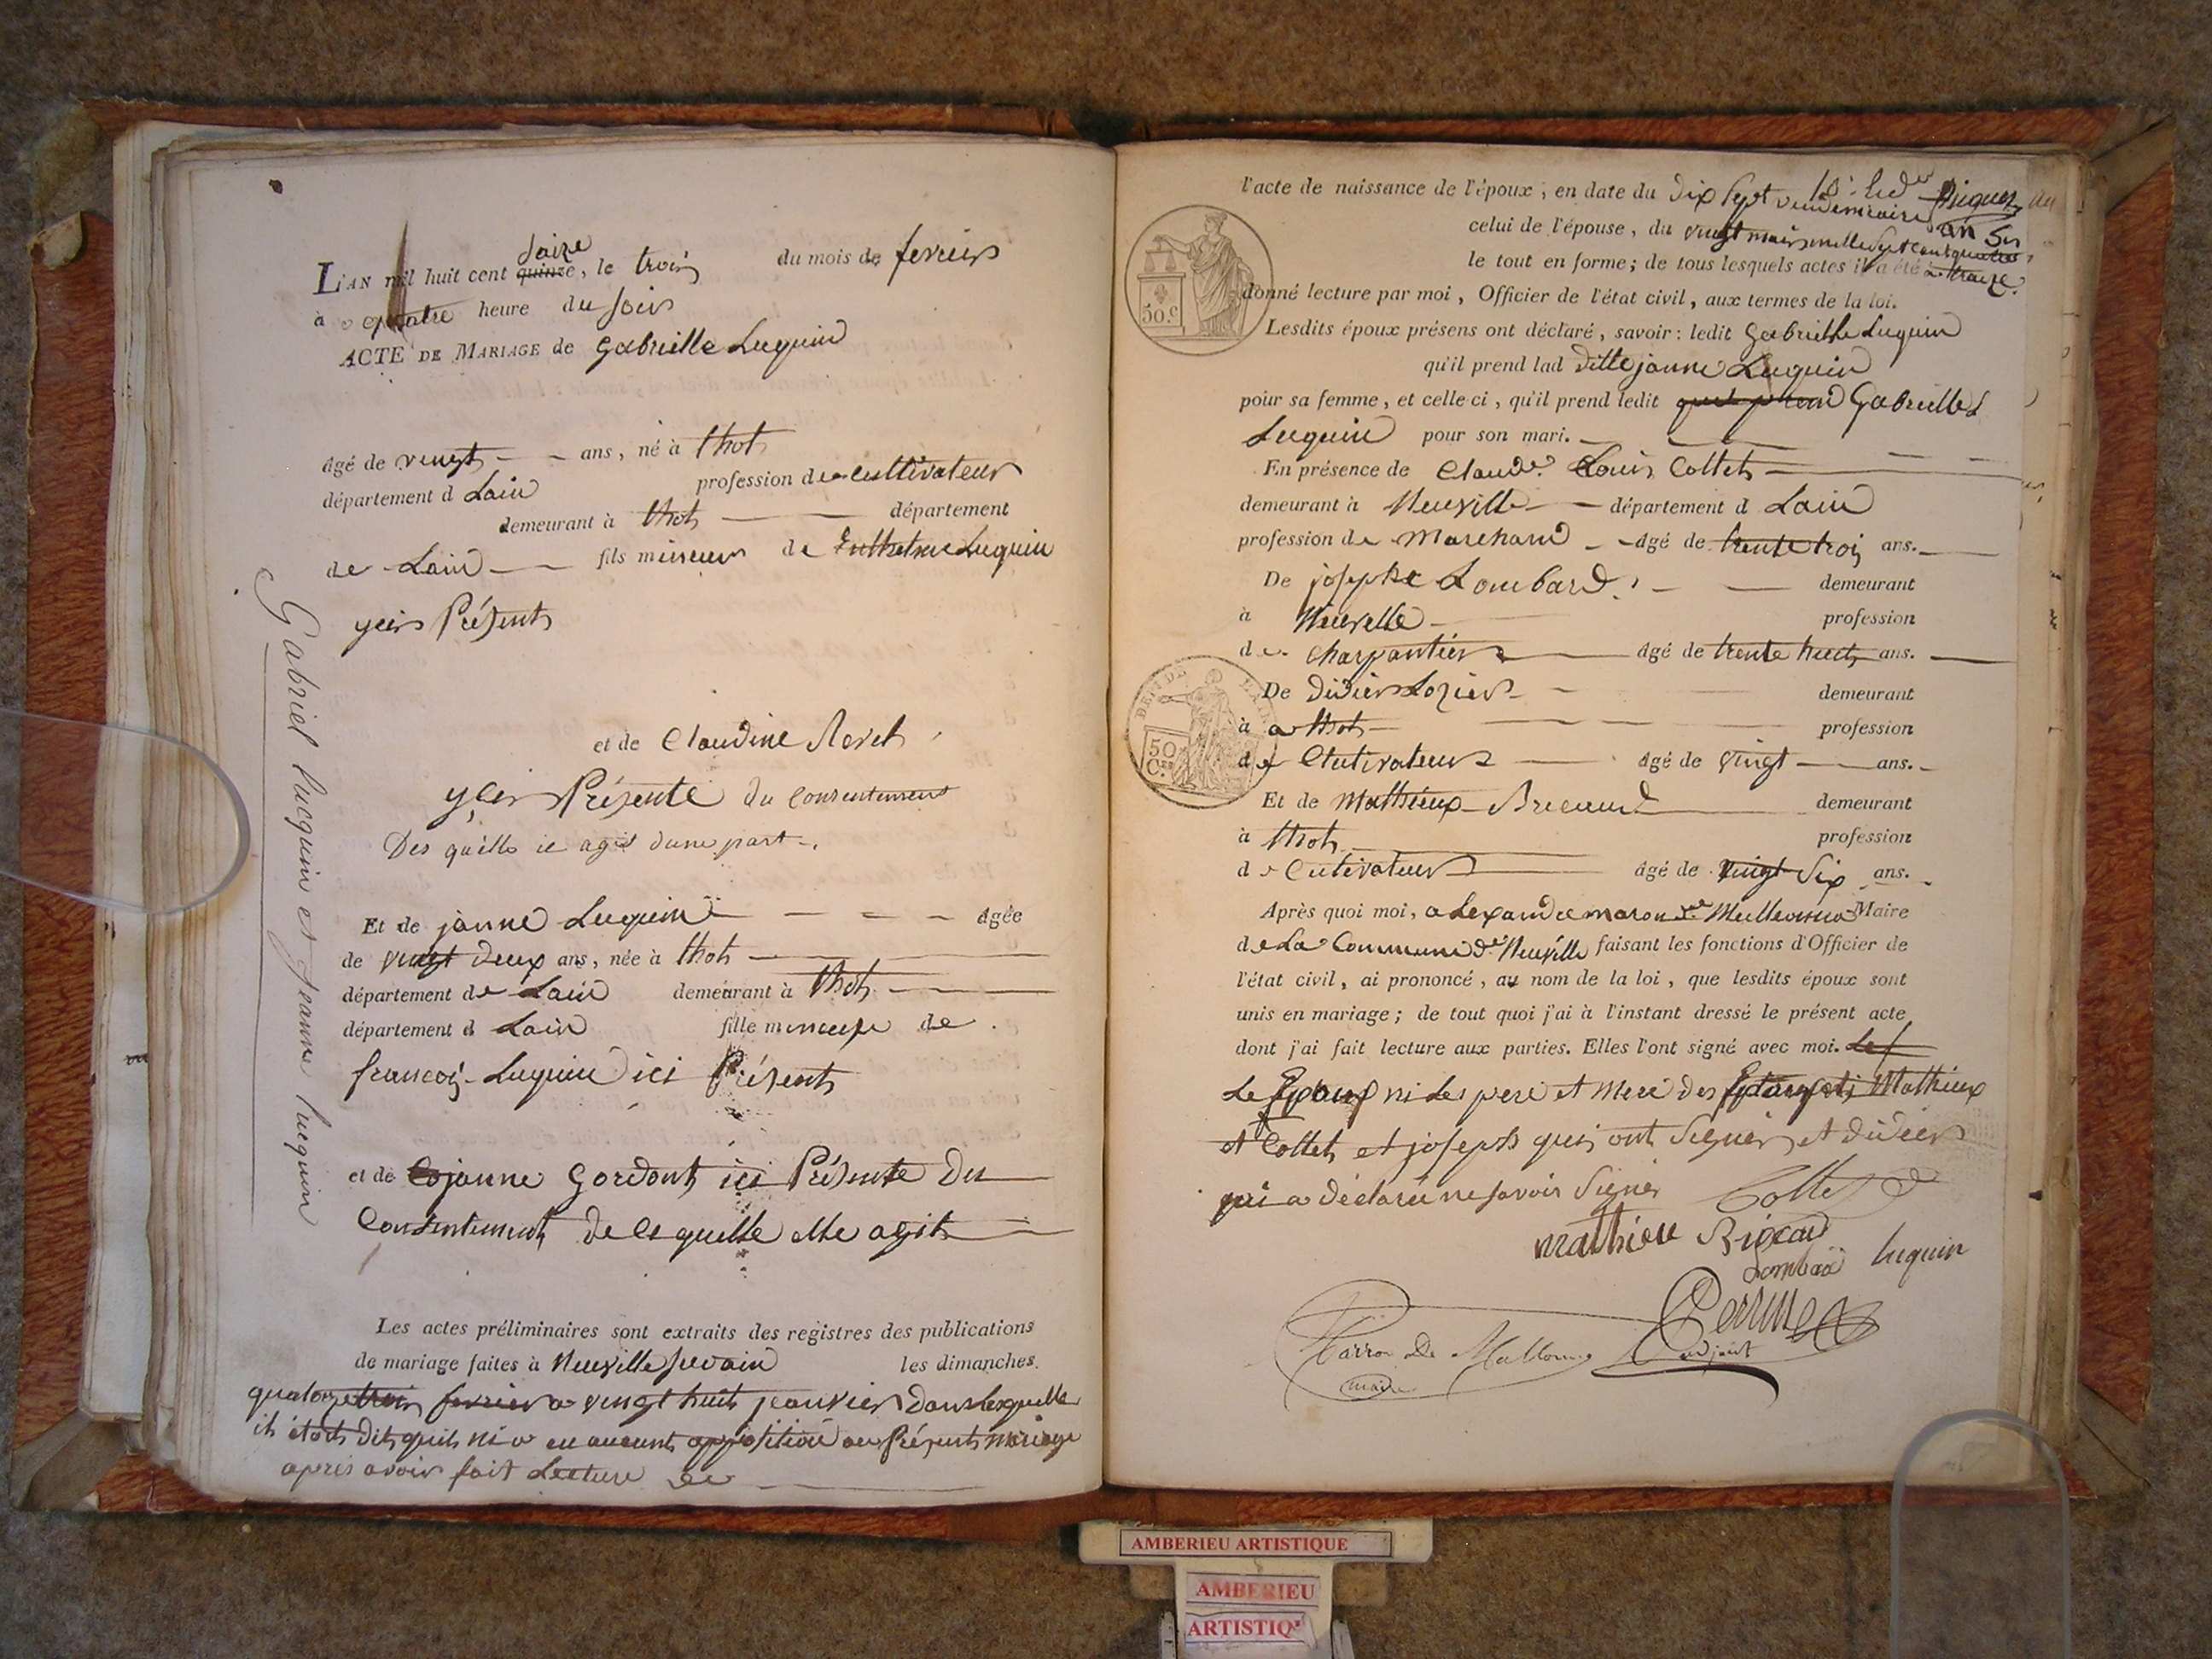 saize
L'AN mil huit cent quinze, le trois du mois de fevrier
à quatre heure du soir
ACTE DE MARIAGE de Gabrielle Luquin
âgé de vengt ans, né à thol
département d Lain profession de cultivateur
demeurant à thol département
de Lain fils mineur de Luquin
ycis Présents
et de Claudine Revel
ycis Présente du consentement
Des quélle ie agit dune part
Et de janne Luquin âgée
de vingt deux ans, née à thol
département de Lain demeurant à thol
département d Lain fille mineure de
francois Luquin ici Présents
et de janne Gordont ici Présente du
Consentement de les quelle elle agit
Les actes préliminaires sont extraits des registres des publications
de mariage faites à Neuville sur ain les dimanches
quatorze trois fevrier a vingt huit janvier dans lesquelle
il étoit dit quil ni a eu aucunt oppositiont au Présents mariage
apres avoir fait Lecture de
Gabriel lucquin et Jeanne lucquin
l'acte de naissance de l'époux, en date du dix sept vendemiaire an
celui de l'épouse, du vingt mars mille sept cent quatre
treize
le tout en forme; de tous lesquels actes il a été
donné lecture par moi, Officier de l'état civil, aux termes de la loi.
50.c
Lesdits époux présens ont déclaré, savoir: ledit Gabrielle Luquin
qu'il prend lad ditte janne Luquin
pour sa femme, et celle-ci, qu'il prend ledit Gabrielle
Luquin pour son mari.
En présence de Claude Louis Collet
demeurant à Neuville département d Lain
profession de Marchand âgé de trente trois ans.
De josephe Lombard demeurant
à Neuville profession
de charpantier âgé de trente huit ans.
De didier Lozier demeurant
à a thol profession
de Cultivateur âgé de vingt ans.
50 C.es
Et de Mathieux Brecaud demeurant
à thol profession
de Cutivateur âgé de vingt Six ans.
Après quoi moi, alexandre maron de Maire
de La Commune de Neuville faisant les fonctions d'Officier de
l'état civil, ai prononcé, au nom de la loi, que lesdits époux sont
unis en mariage; de tout quoi j'ai à l'instant dressé le présent acte
dont j'ai fait lecture aux parties. Elles l'ont signé avec moi.
Le Epoux ni Les pere et Mere des Mathieux
et Collet et joseph qui ont Signer et didier
qui a déclarée ne savoir Signer Collet
mathieu Brocard
Lombard luquin
Perrine
adjoint
Marron De Mallonne
maire
AMBERIEU ARTISTIQUE
AMBERIEU
ARTISTIQ